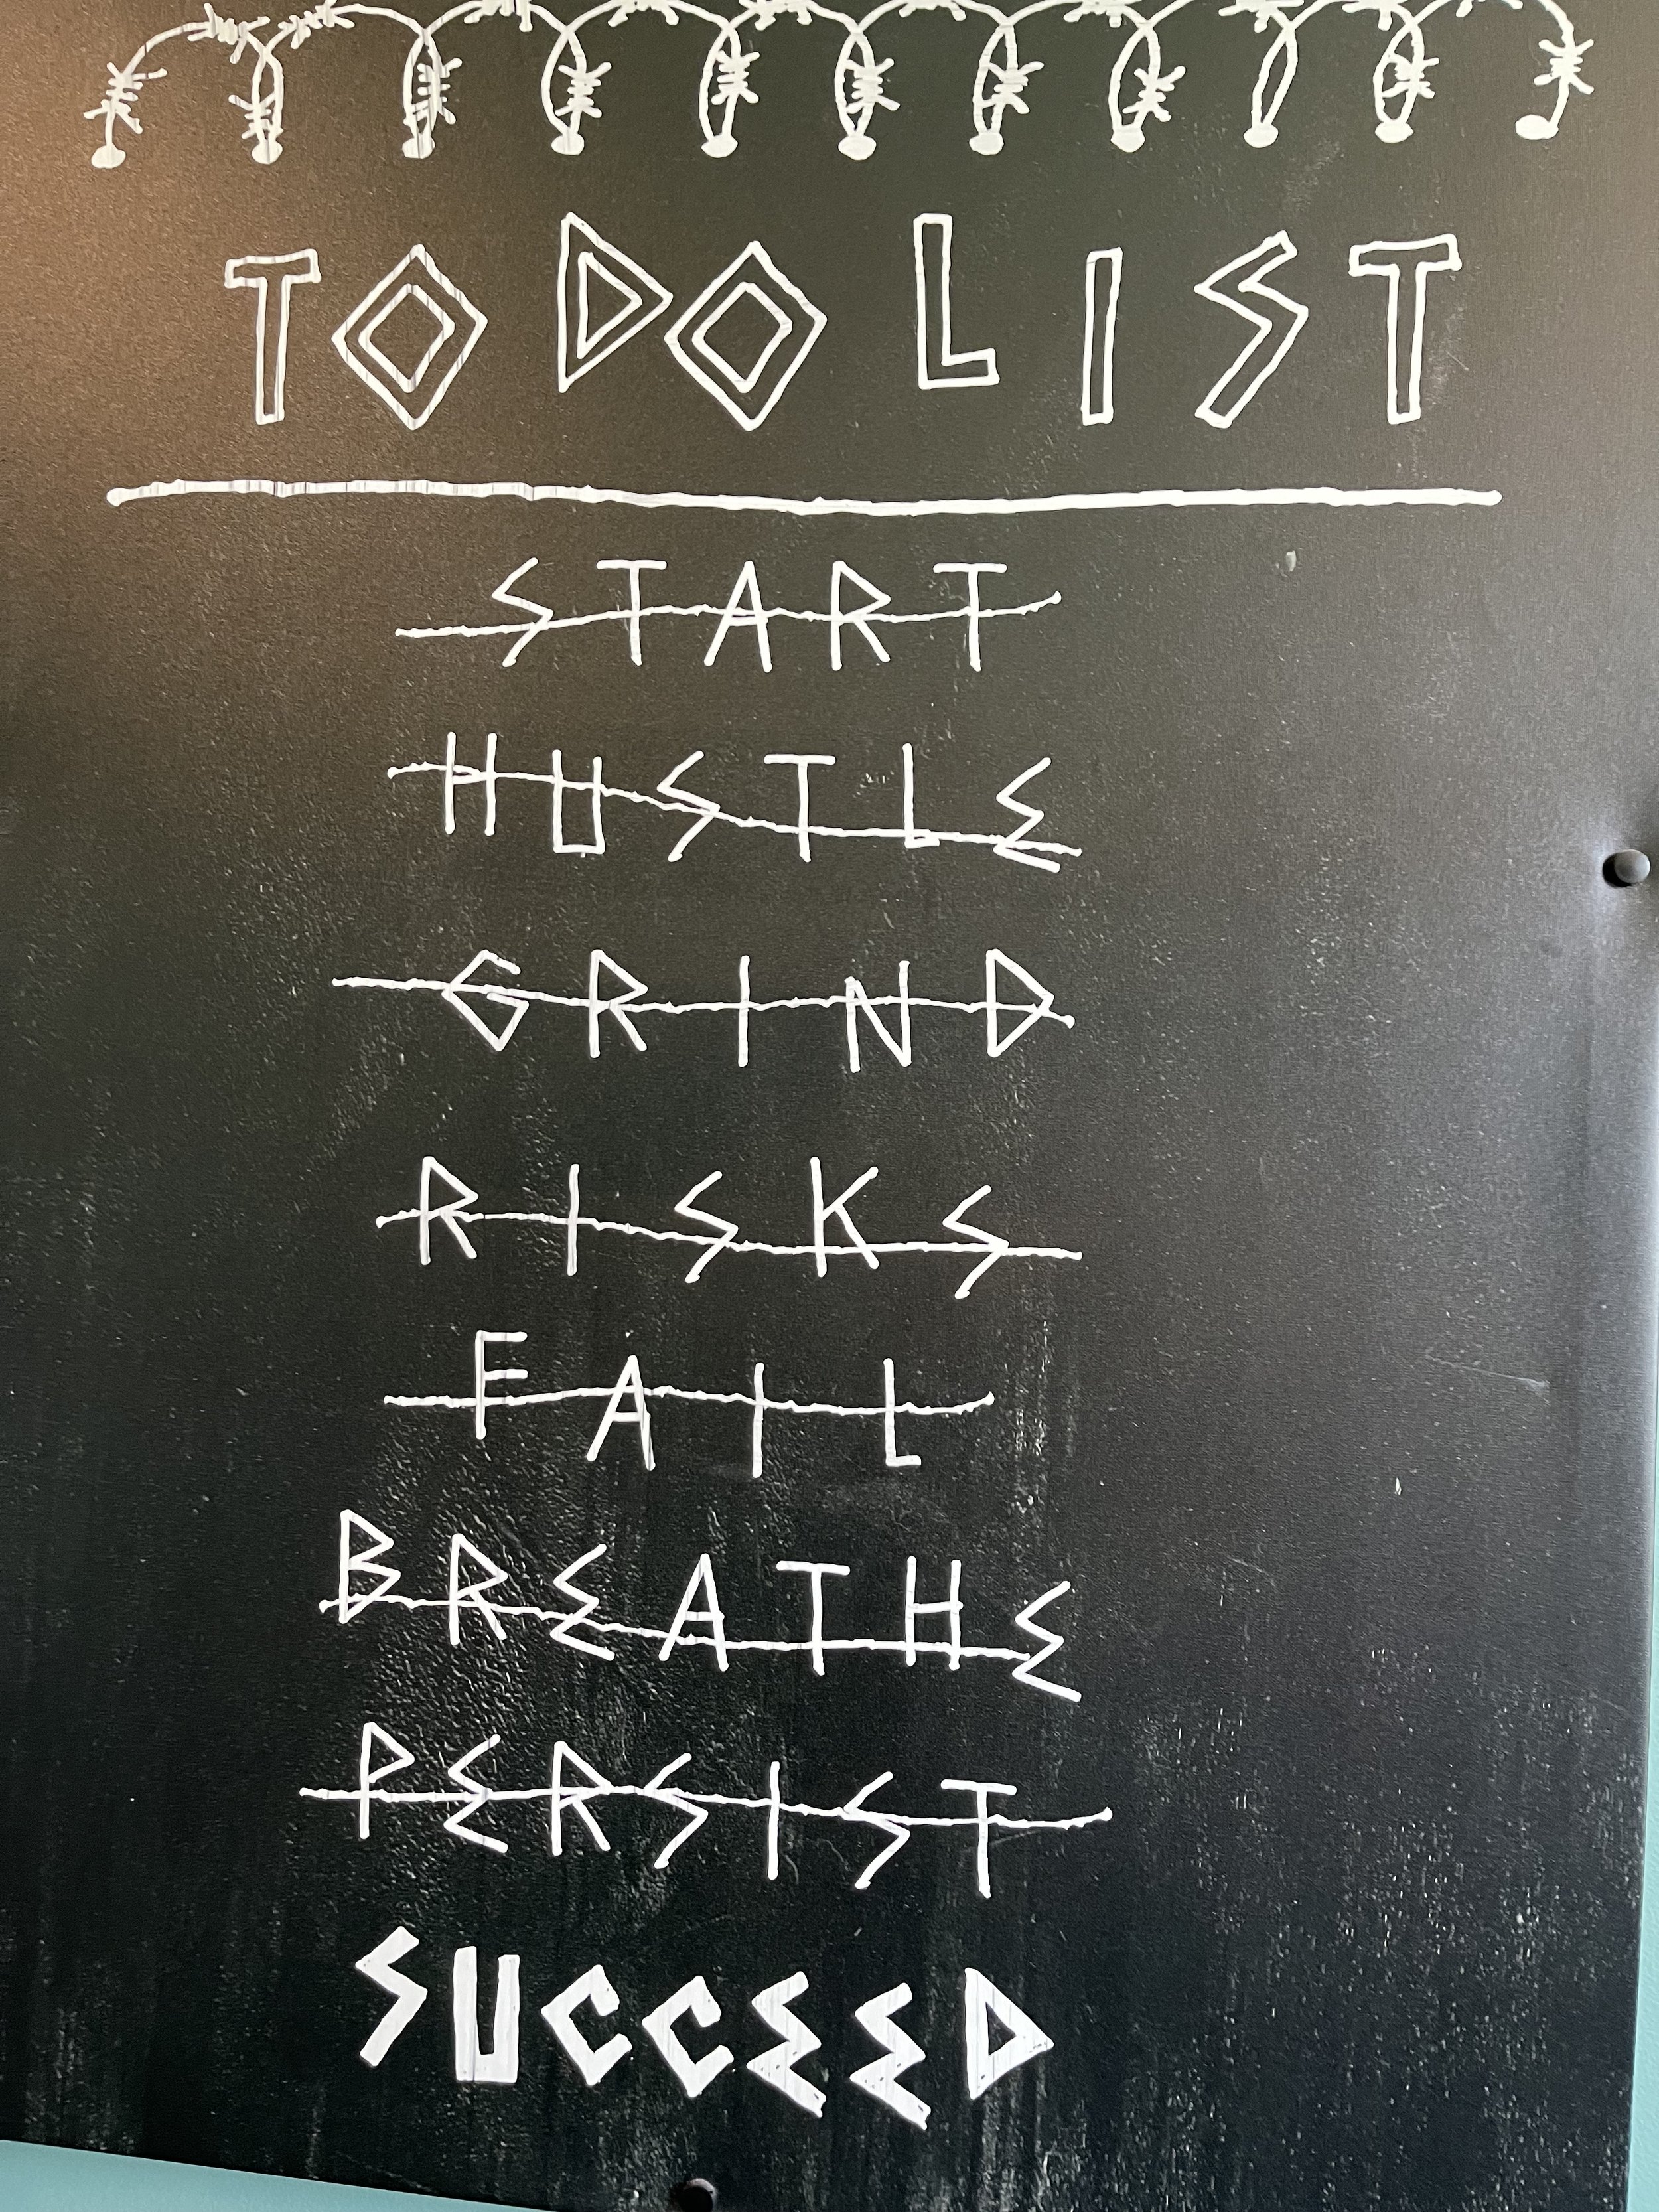 TO DO LIST
START
HUSTLE
GRIND
RISKS
FAIL
BREATHE
PERSIST
SUCCEED